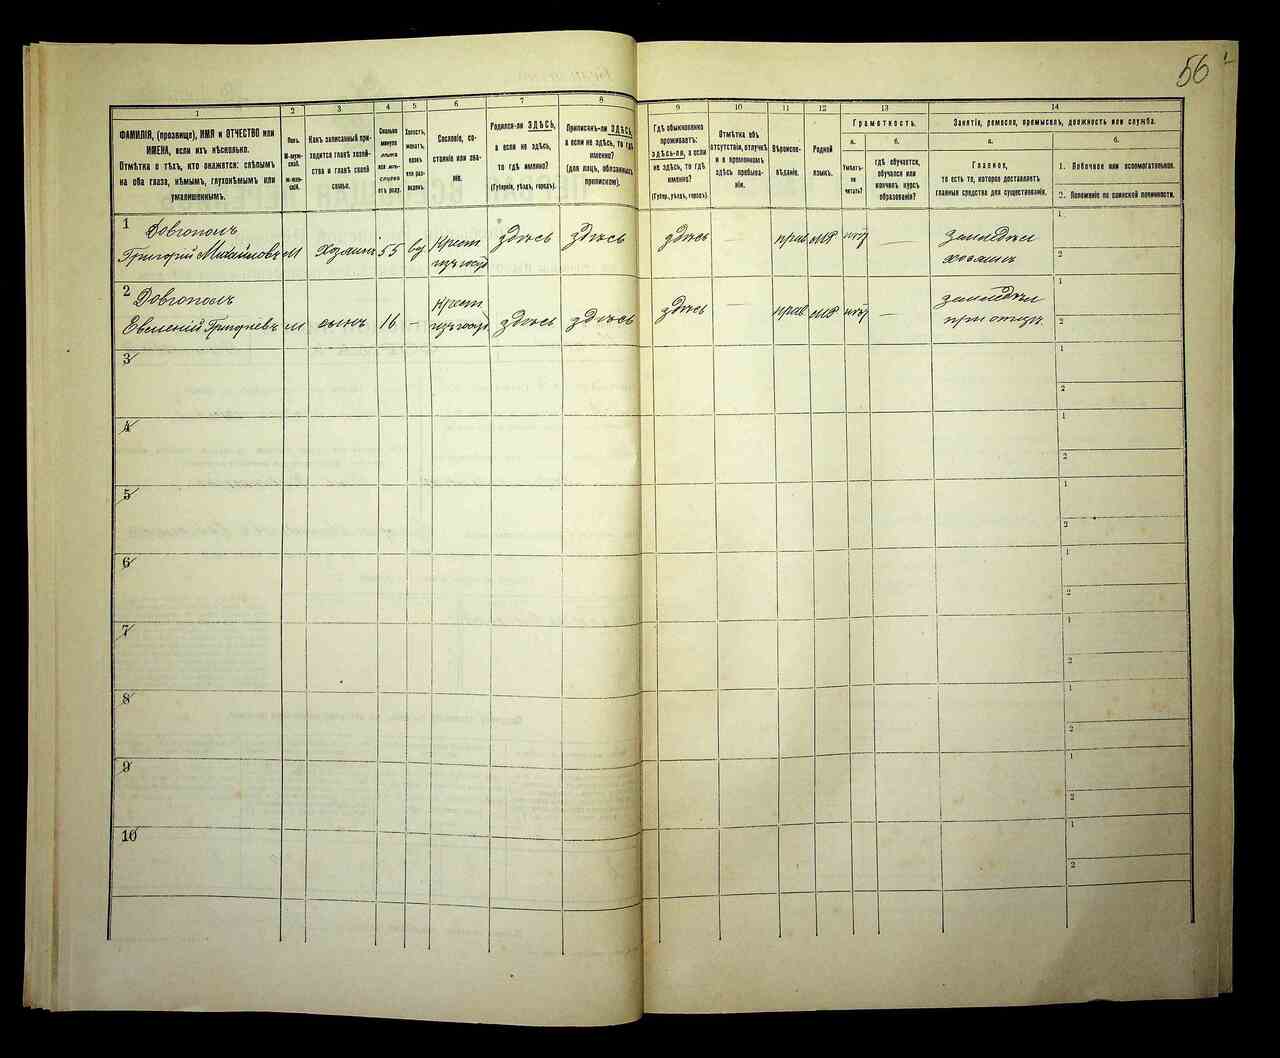 56
1 2 3 4 5 6 7 8 9 10 11 12 13 14
ФАМИЛІЯ, (прозвище), ИМЯ и ОТЧЕСТВО или
ИМЕНА, если ихъ нѣсколько.
Отмѣтка о тѣхъ, кто окажется: слѣпымъ
на оба глаза, нѣмымъ, глухонѣмымъ или
умалишеннымъ.
Полъ.
М-муж-
ской.
Ж-жен-
скій.
Какъ записанный при-
ходится главѣ хозяй-
ства и главѣ своей
семьи.
Сколько
минуло
лѣтъ
или мѣ-
сяцевъ
отъ роду.
Холостъ,
женатъ,
вдовъ
или раз-
веденъ.
Сословіе, со-
стояніе или зва-
ніе.
Родился-ли ЗДѢСЬ,
а если не здѣсь,
то гдѣ именно?
(Губернія, уѣздъ, городъ).
Приписанъ-ли ЗДѢСЬ,
а если не здѣсь, то гдѣ
именно?
(для лицъ, обязанныхъ
припиской).
Гдѣ обыкновенно
проживаетъ:
здѣсь-ли, а если
не здѣсь, то гдѣ
именно?
(Губер., уѣздъ, городъ).
Отмѣтка объ
отсутствіи, отлучкѣ
и о временномъ
здѣсь пребыва-
ніи.
Вѣроиспо-
вѣданіе.
Родной
языкъ.
Грамотность.
а.
Умѣетъ-
ли
читать?
б.
гдѣ обучается,
обучался или
кончилъ курсъ
образованія?
Занятіе, ремесло, промыселъ, должность или служба.
а.
Главное,
то есть то, которое доставляетъ
главныя средства для существованія.
б.
1. Побочное или вспомогательное.
2. Положеніе по воинской повинности.
1 Довгополъ
Григорій Михайловъ М хозяинъ 55 вд Крест здѣсь здѣсь здѣсь — прав МР нѣтъ — земледѣл
изъ госуд хозяинъ
1
2
2 Довгополъ
Евменій Григорьевъ М сынъ 16 — Крест здѣсь здѣсь здѣсь — прав МР нѣтъ — земледѣл
изъ госуд при отцѣ
1
2
3
1
2
4
1
2
5
1
2
6
1
2
7
1
2
8
1
2
9
1
2
10
1
2